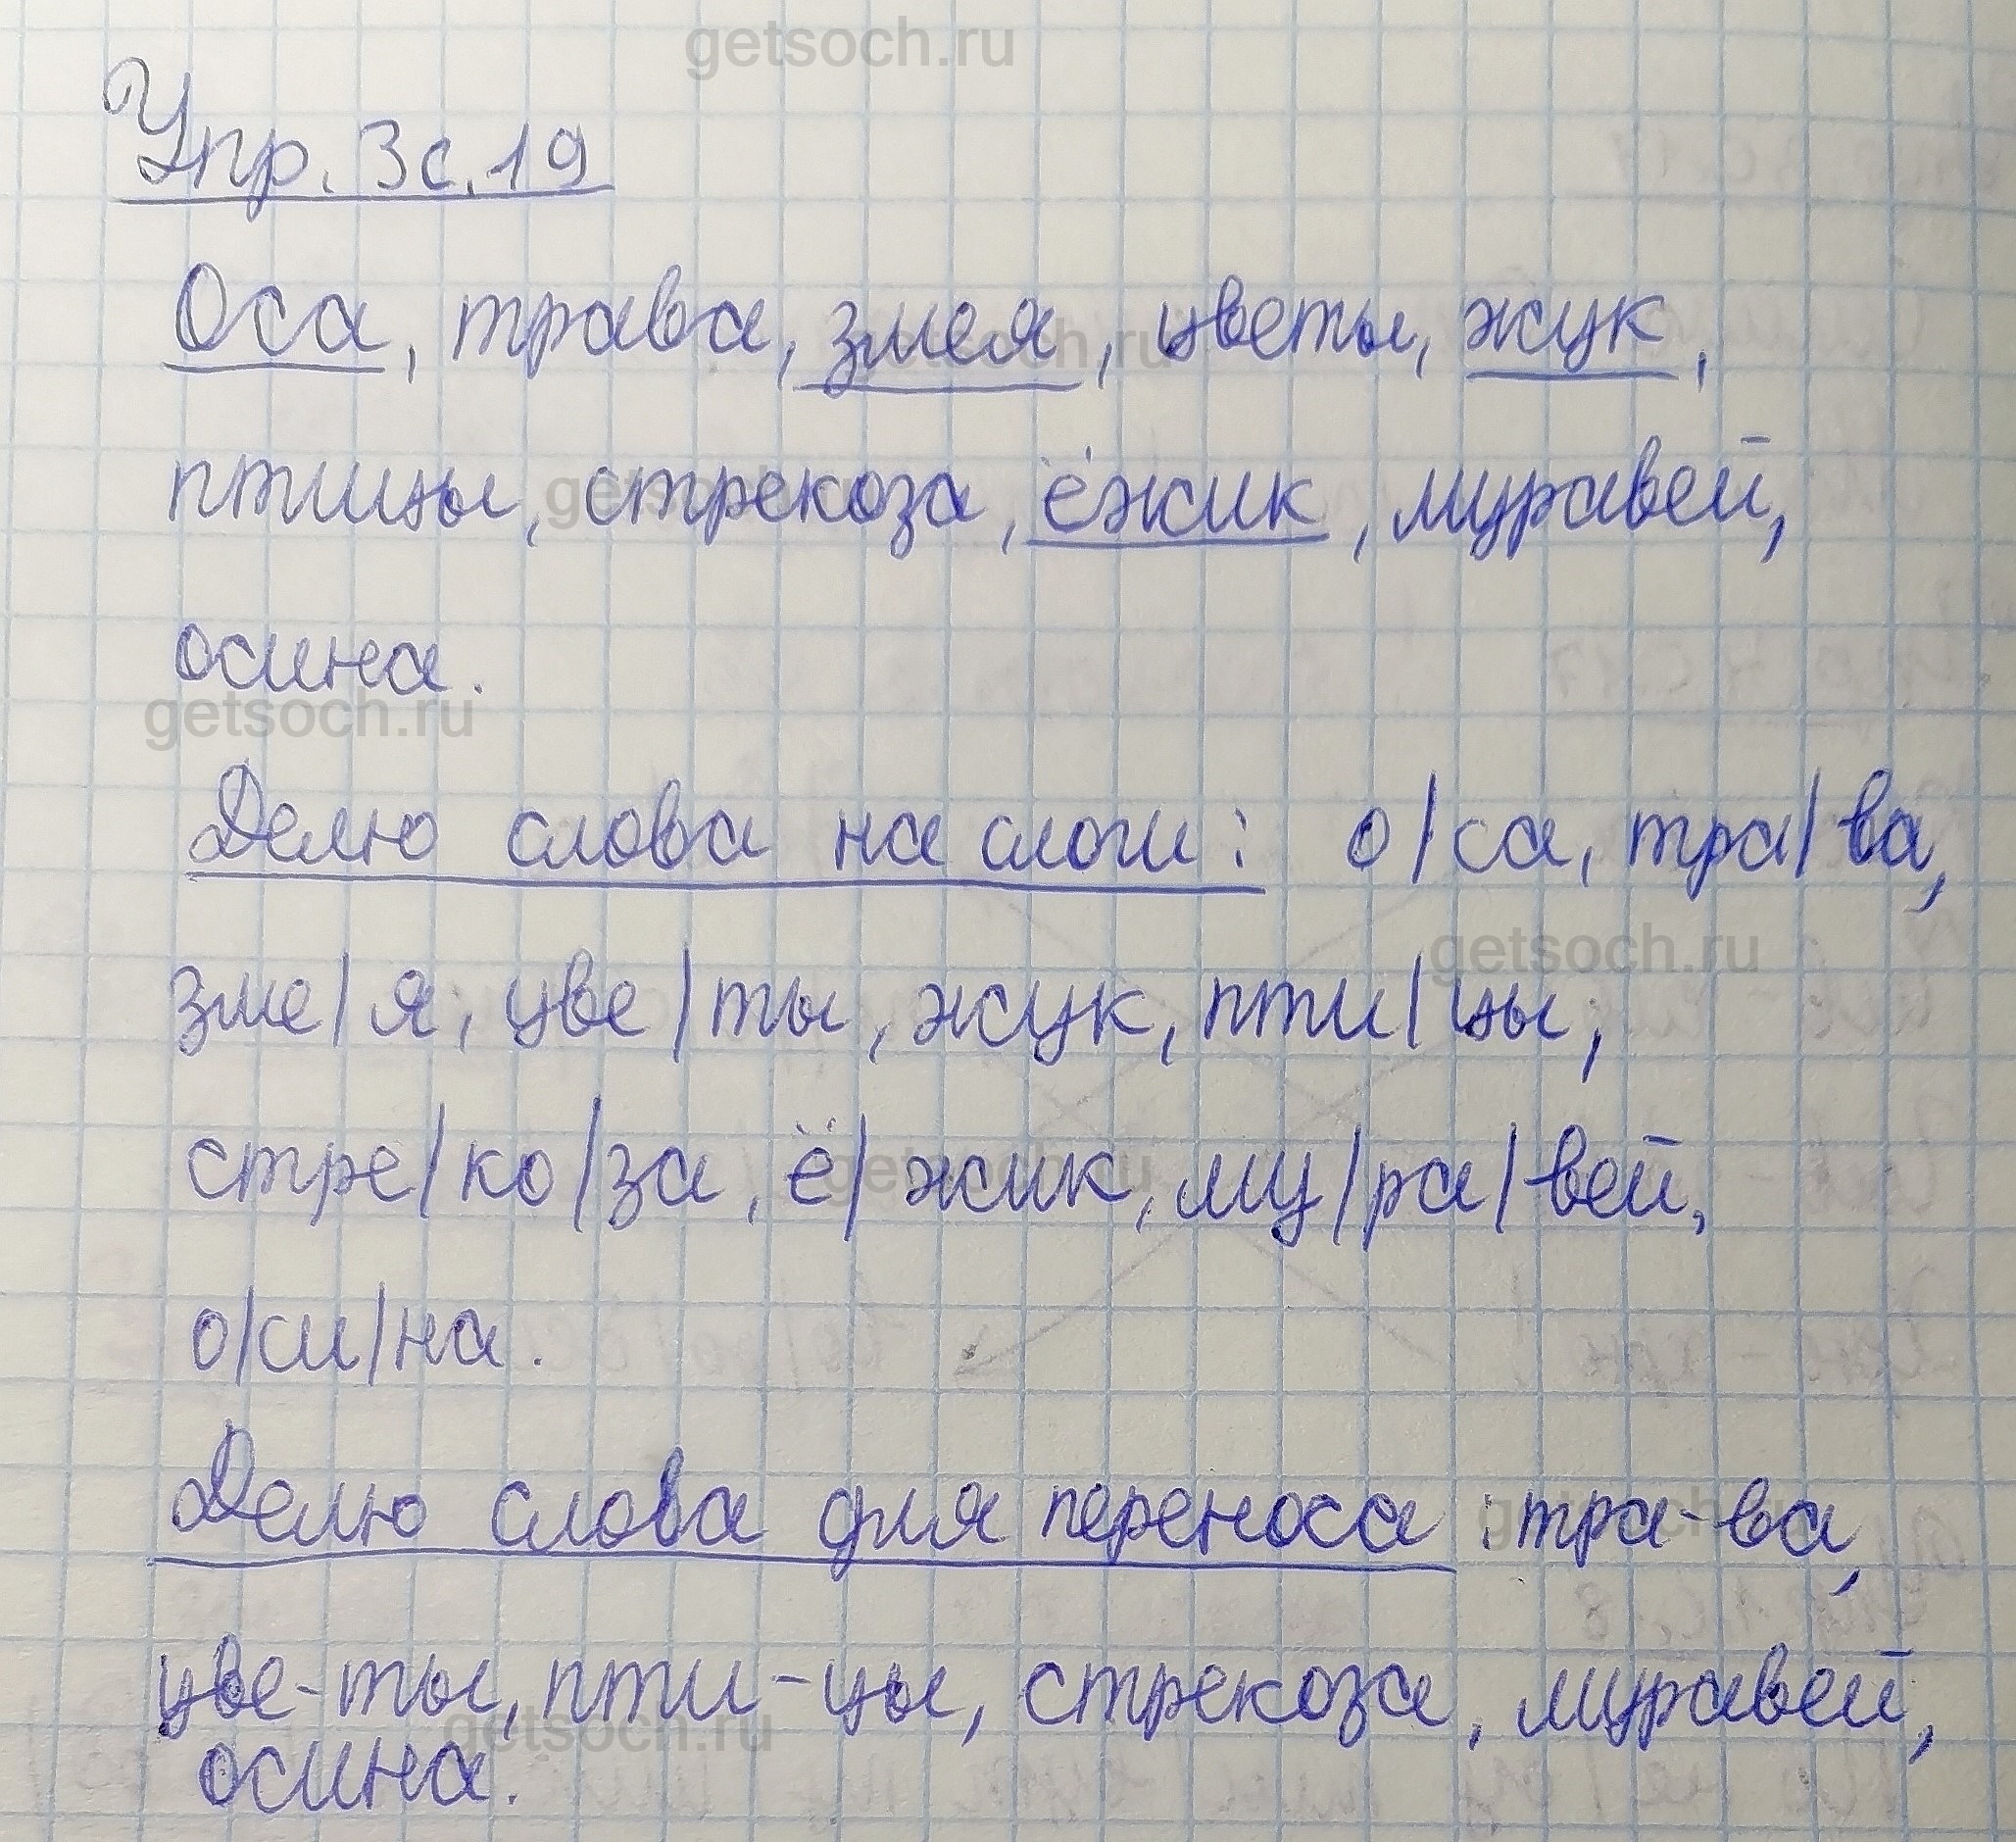 getsoch.ru
Упр. 3 с. 19
Оса, трава, змея, цветы, жук,
getsoch.ru
птицы, стрекоза, ёжик, муравей,
getsoch.ru
осина.
getsoch.ru
Делю слова на слоги: о/са, тра/ва,
getsoch.ru
зме/я, цве/ты, жук, пти/цы,
стре/ко/за, ё/жик, му/ра/вей,
getsoch.ru
о/си/на.
Делю слова для переноса: тра-ва,
getsoch.ru
цве-ты, пти-цы, стрекоза, муравей,
getsoch.ru
осина.